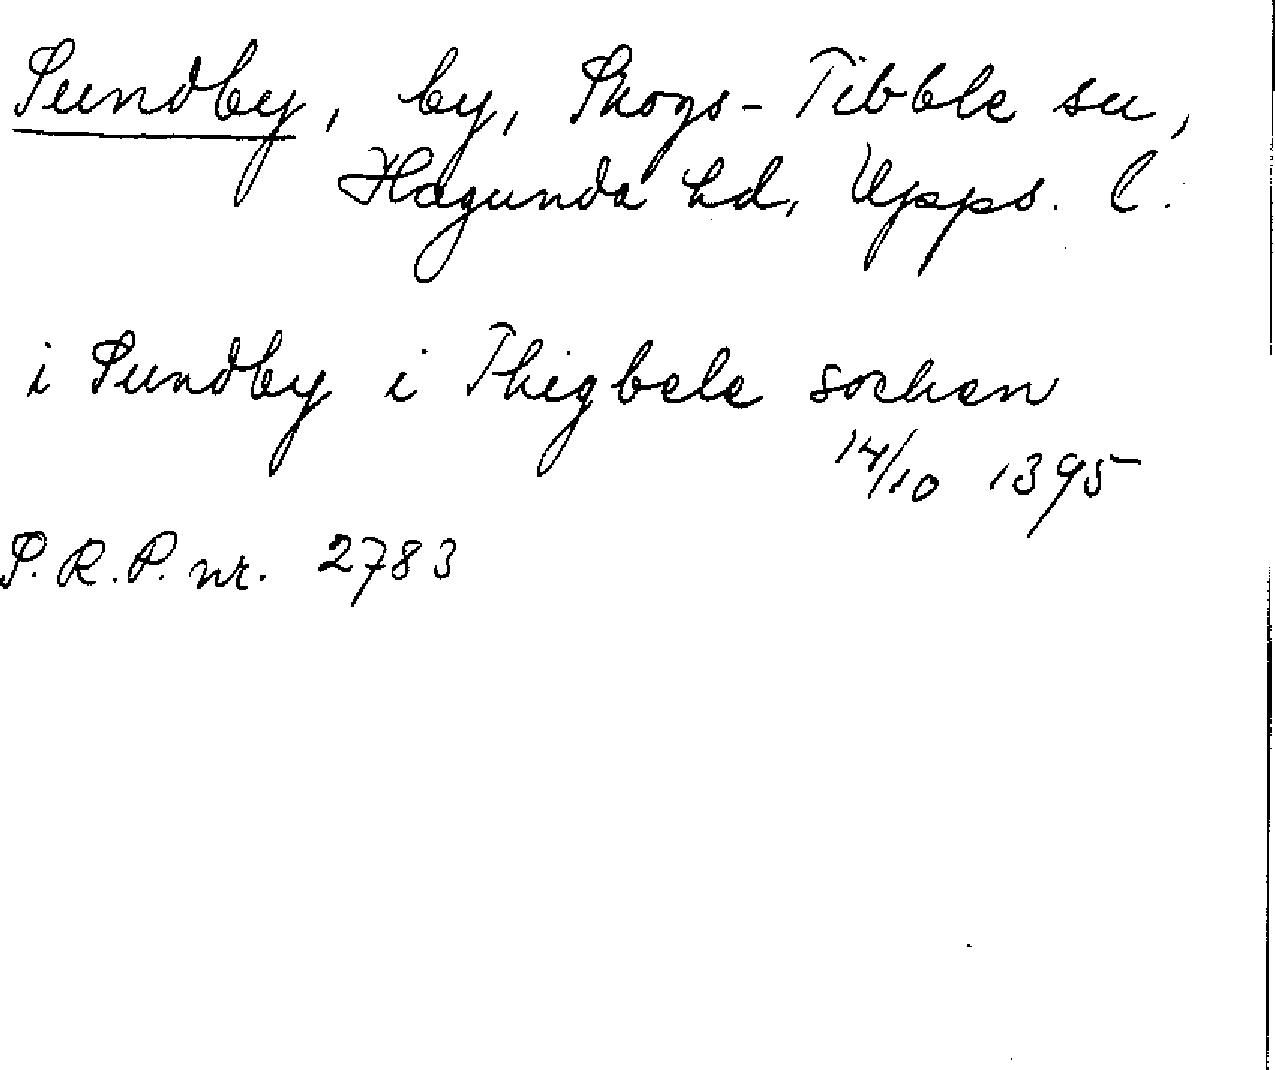 Sundby, by, Skogs-Tibble sn,
Hagunda hd, Upps. l.
i Sundby i Thigbele soken
14/10 1395
S.R.P. nr. 2783